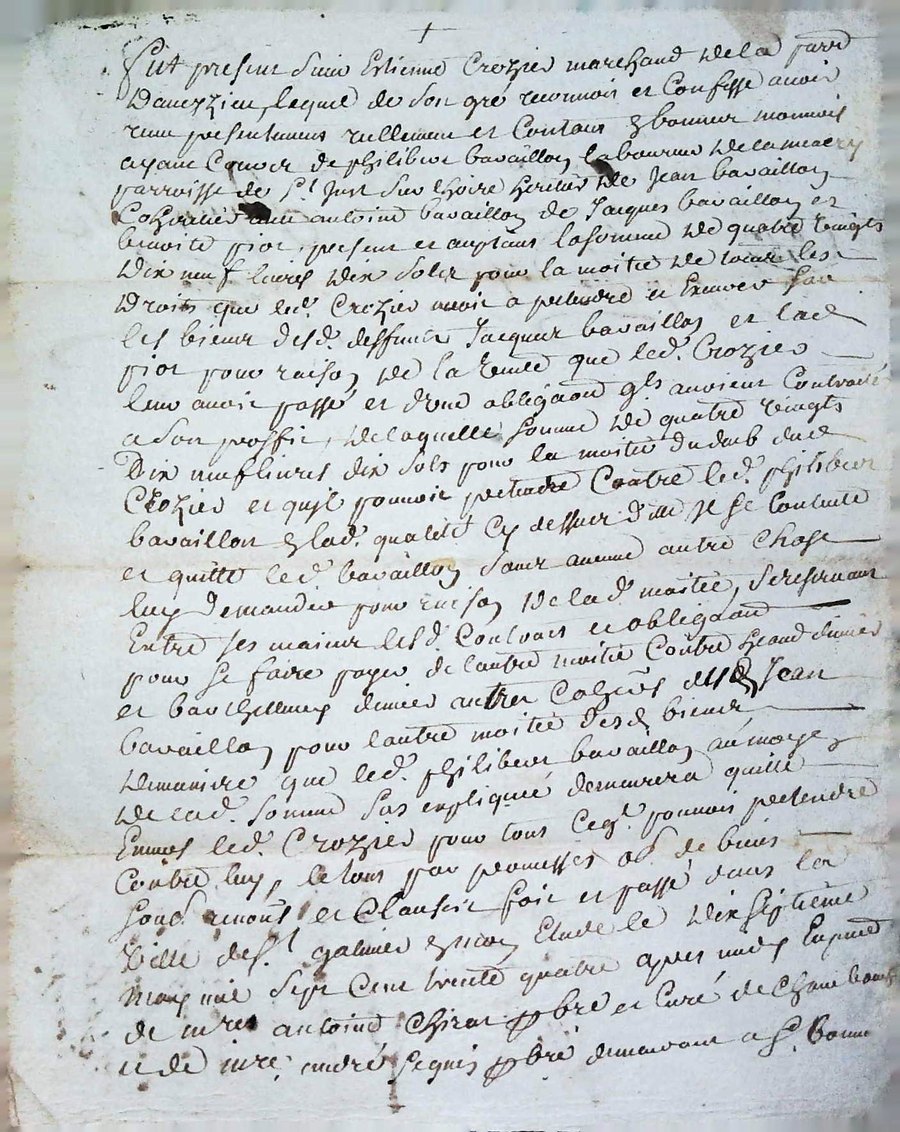 +
Fut present Sieur Estienne Crozier marchand de la parr
Daveizieu, lequel de son gré reconnoit et Confesse avoir
receu presentement reellement et Contant en bonnes monnoies
ayant Cours de philibert bavaillon laboureur de
parroisse de St Just Sur Loire heritier de Jean bavaillon
Coheritier avec antoine bavaillon de Jacques bavaillon et
benoite piot, present et acceptant la somme de quatre vingts
dix neuf livres dix Sols pour la moitié de tous les
Droits que led. Crozier avoit a pretendre et Exercer Sur
les biens desd. deffunts Jacques bavaillon et lad
piot pour raison de la vente que led. Crozier
leur avoit passé et d'une obligaon qls avoient Contracté
a Son proffit, de laquelle Somme de quatre vingts
Dix neuf livres dix Sols pour la moitié du dub dud
Crozier et quil pouvoit pretendre Contre led. philibert
bavaillon en lad. qualité Cy dessus d. Il Se Contente
et quitte led. bavaillon Sans aucune autre Chose
luy Demander pour raison de lad. moitié, Se reservant
Entre Ses mains lesd. Contrats et obligaon
pour Se faire payer de lautre moitié Contre
et barthellemy autres Coheers dud Jean
bavaillon pour lautre moitié desd biens
De maniere que led. philibert bavaillon au moyen
de lad. Somme Sus expliquée demeurera quitte
Envers led. Crozier pour tous Ce ql pouvoit pretendre
Contre luy, le tous par promesses ob. de biens
Soub. renons et Clauses fait et passé dans la
ville de St galmier en mon Etude le dix Septieme
may mil Sept Cent trente quatre apres midy En pnce
de mre antoine Chirat pbre et Curé de
et de mre andré pbre demeurant a St bonnet